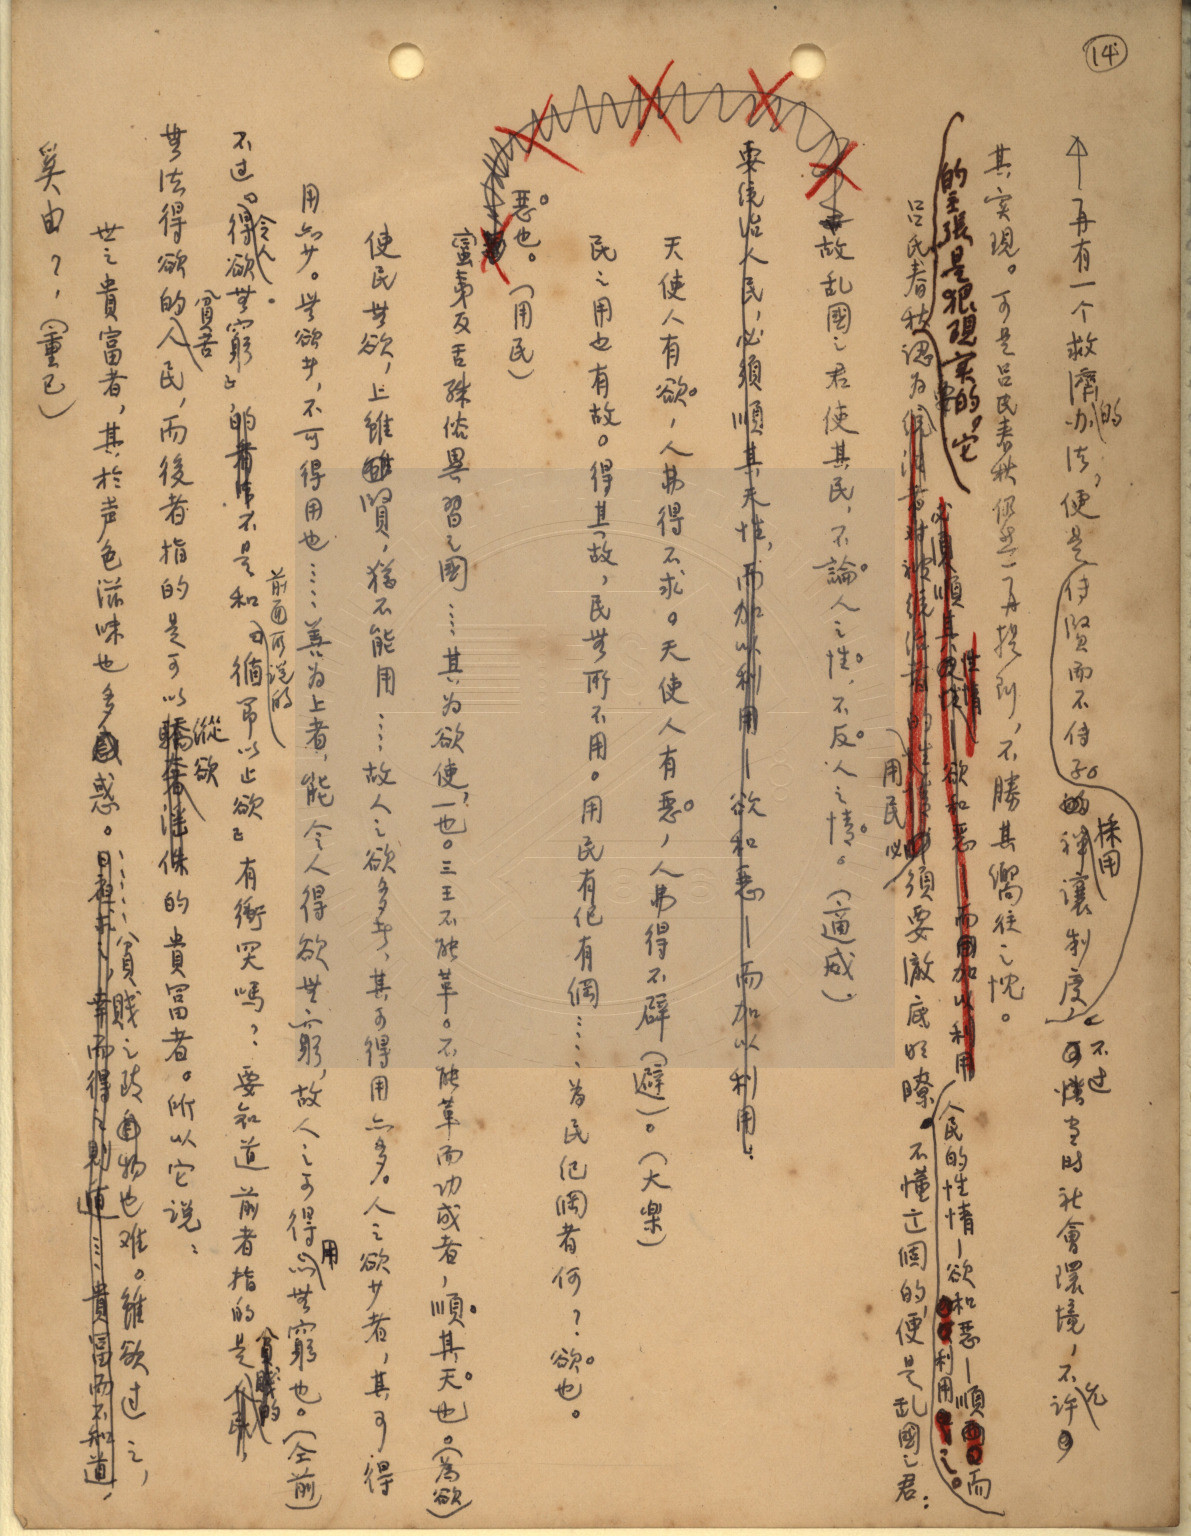 14
再有一个救濟的办法，便是侍賢而不侍子的採用禪讓制度」。不过當时社會環境，不允許
其实現。可是呂氏春秋仍然一再提到，不勝其嚮往之忱。
的主張是很現实的。它
呂氏春秋認为要
必須順其性情—欲和惡—而加以利用
人民的性情—欲和惡—順而
利用之。
用民必須要澈底明瞭。不懂这個的，便是乱國之君：
故乱國之君使其民，不論人之性，不反人之情。（適威）
要统治人民，必須順其天性，而加以利用—欲和惡—而加以利用：
天使人有欲，人弗得不求。天使人有惡，人弗得不辟（避）。（大樂）
民之用也有故。得其故，民無所不用。用民有纪有綱……为民纪綱者何？欲也。
惡也。（用民）
蛮夷反舌殊俗異習之國……其为欲使一也。三王不能革。不能革而功成者，順其天也。（為欲）
使民無欲，上雖賢，猶不能用……故人之欲多者，其可得用亦多。人之欲少者，其可得
用亦少。無欲者，不可得用也……善为上者，能令人得欲無窮，故人之可得用亦無窮也。（仝前）
不过。「令人得欲無窮」的不是和前面所说的「循吊以止欲」有衝突嗎？要知道前者指的是貧賤的人民，
無法得欲的貧苦人民，而後者指的是可以縱欲的貴富者。所以它说：
世之貴富者，其於声色滋味也多惑。日夜求之，幸而得之則遁……貴富而不知道，
……貧賤之致物也难。雖欲过之，
奚由？（重己）